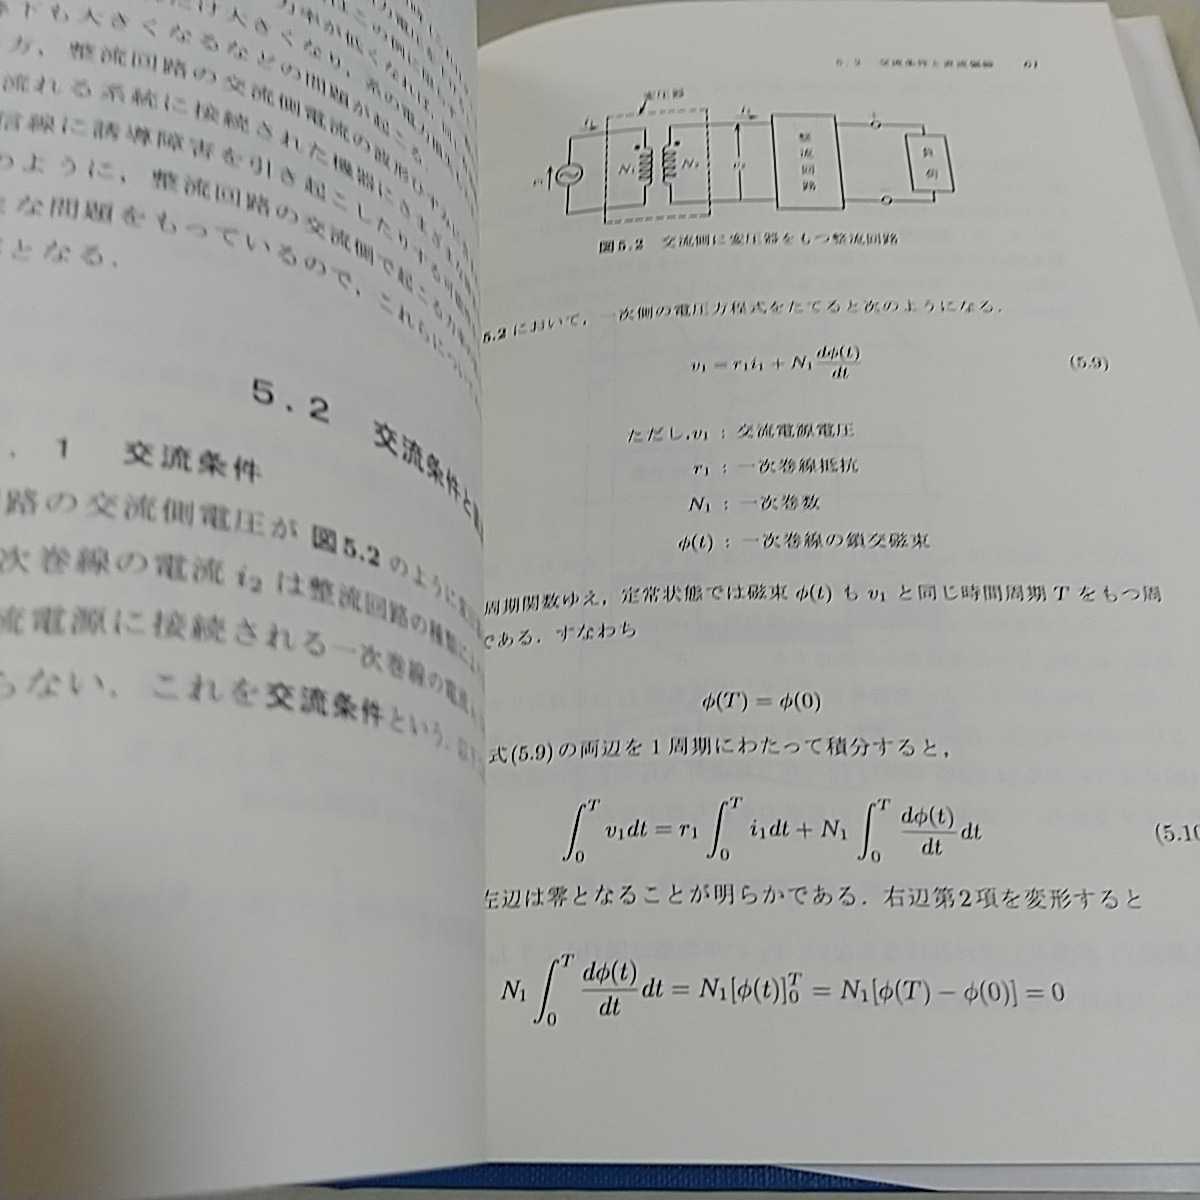 下も大きくなるなどの問題が起こる.
方，整流回路の交流側電流の波形ひずみに
流れる系統に接続された機器にさまざまな
信線に誘導障害を引き起こしたりする可能
のように，整流回路の交流側で起こる力率
な問題をもっているので，これらについて
となる．
5.2 交流条件と
. 1 交流条件
路の交流側電圧が図5.2のように
次巻線の電流 i₂ は整流回路の種類
流電源に接続される一次巻線の電流
らない．これを交流条件という．
5.2 交流条件と直流偏磁 61
変圧器
N₁
N₂
整流回路
負荷
図5.2 交流側に変圧器をもつ整流回路
5.2において，一次側の電圧方程式をたてると次のようになる．
v₁ = r₁i₁ + N₁ dϕ(t)/dt (5.9)
ただし，v₁：交流電源電圧
r₁：一次巻線抵抗
N₁：一次巻数
ϕ(t)：一次巻線の鎖交磁束
周期関数ゆえ，定常状態では磁束 ϕ(t) も v₁ と同じ時間周期 T をもつ周
である．すなわち
ϕ(T) = ϕ(0)
式(5.9)の両辺を1周期にわたって積分すると，
∫₀ᵀ v₁dt = r₁ ∫₀ᵀ i₁dt + N₁ ∫₀ᵀ dϕ(t)/dt dt (5.10
左辺は零となることが明らかである．右辺第2項を変形すると
N₁ ∫₀ᵀ dϕ(t)/dt dt = N₁[ϕ(t)]₀ᵀ = N₁[ϕ(T) − ϕ(0)] = 0